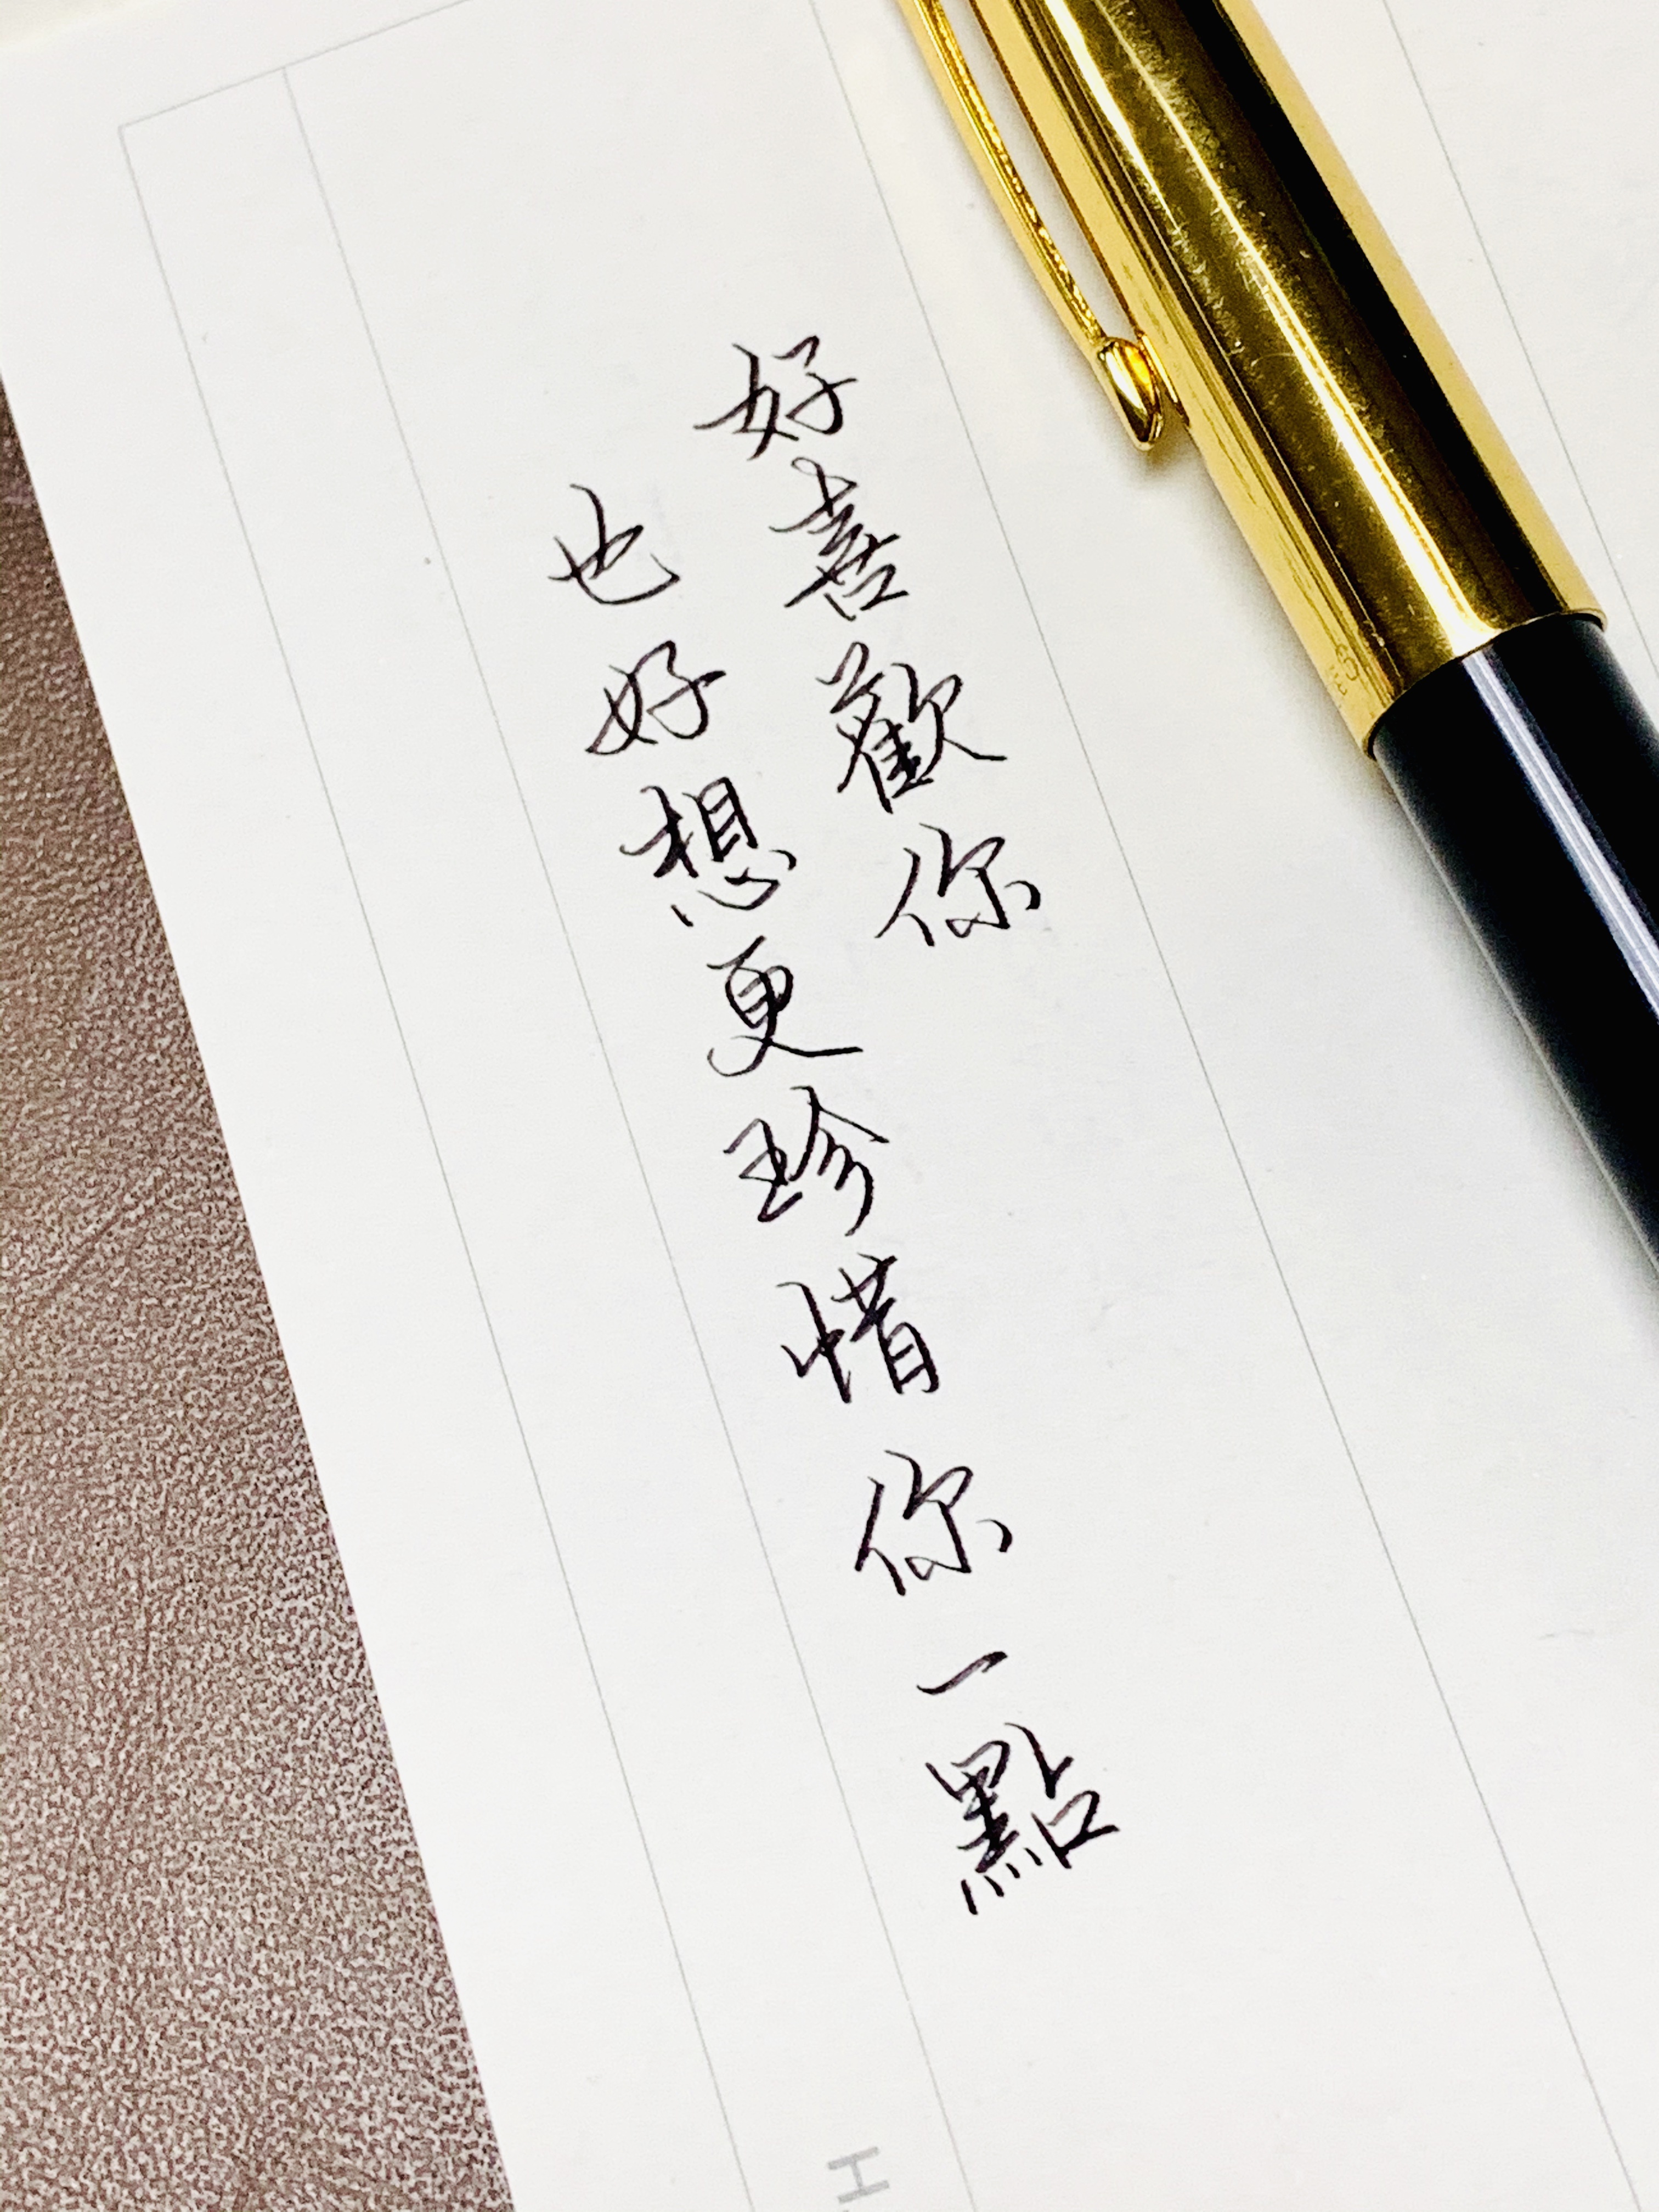 好喜歡你
也好想更珍惜你一點